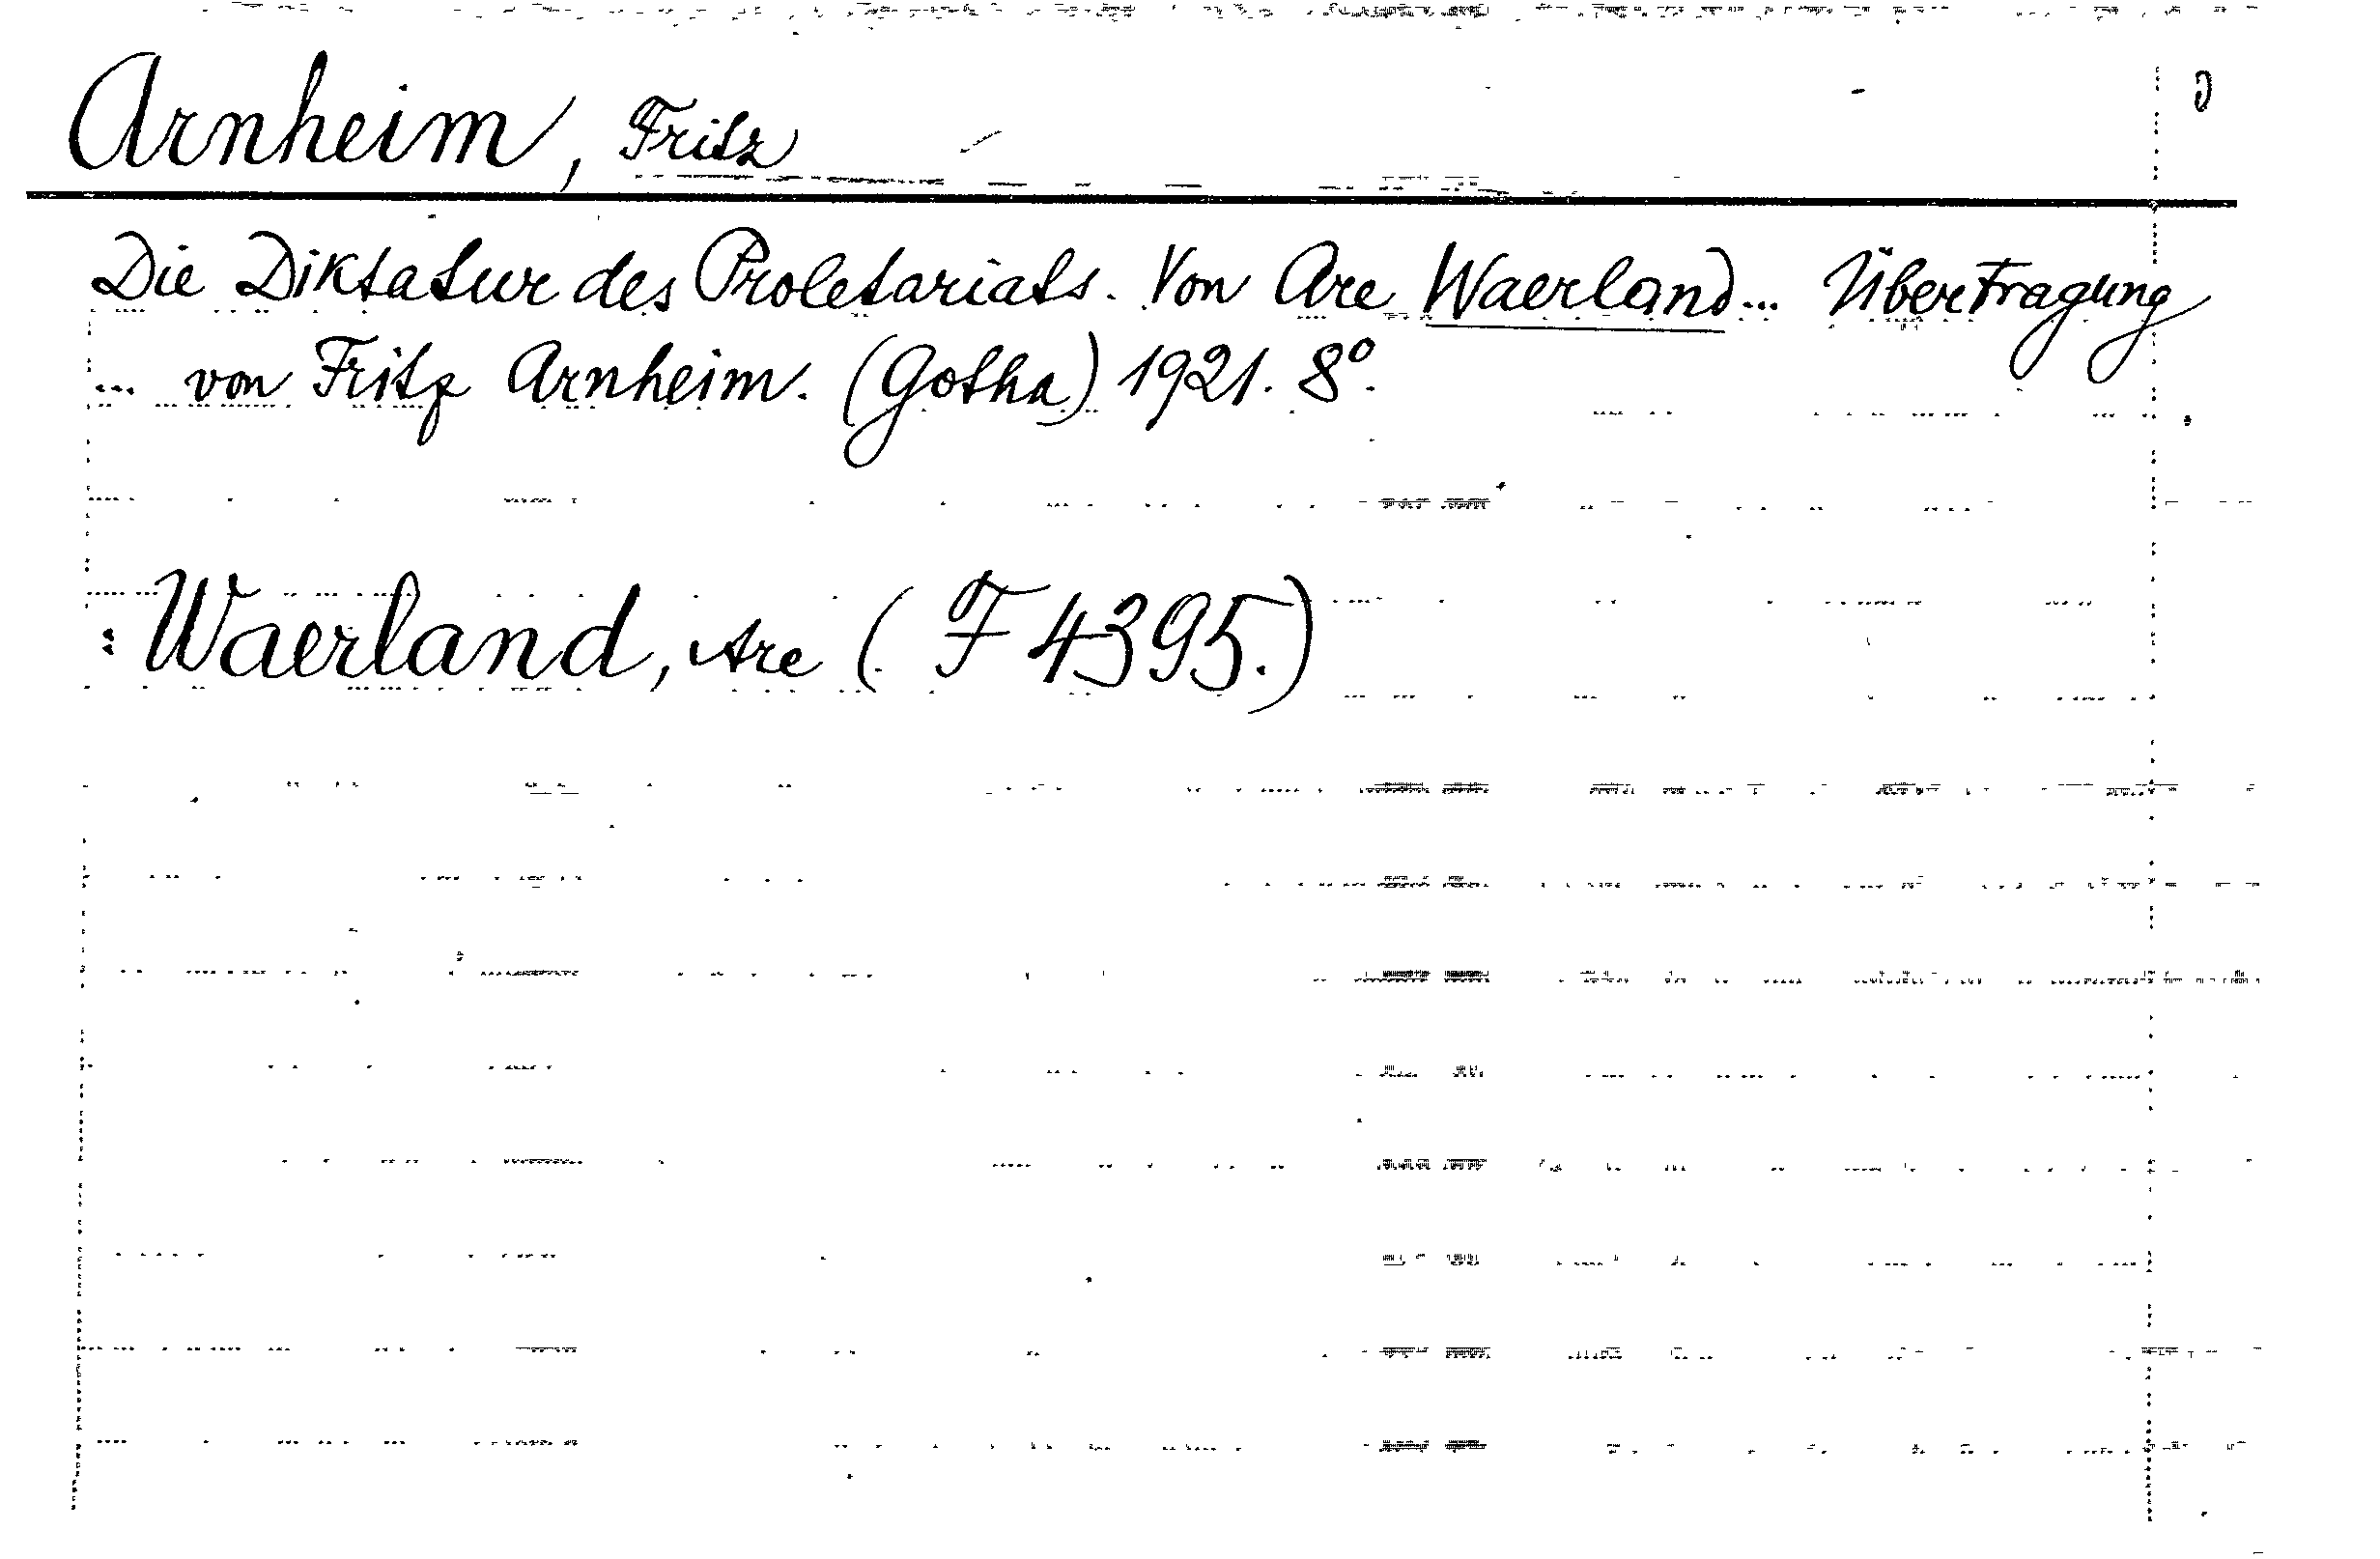 Arnheim, Fritz
Die Diktatur des Proletariats. Von Are Waerland... Übertragung
... von Fritz Arnheim. (Gotha) 1921. 8°.
: Waerland, Are (F 4395.)